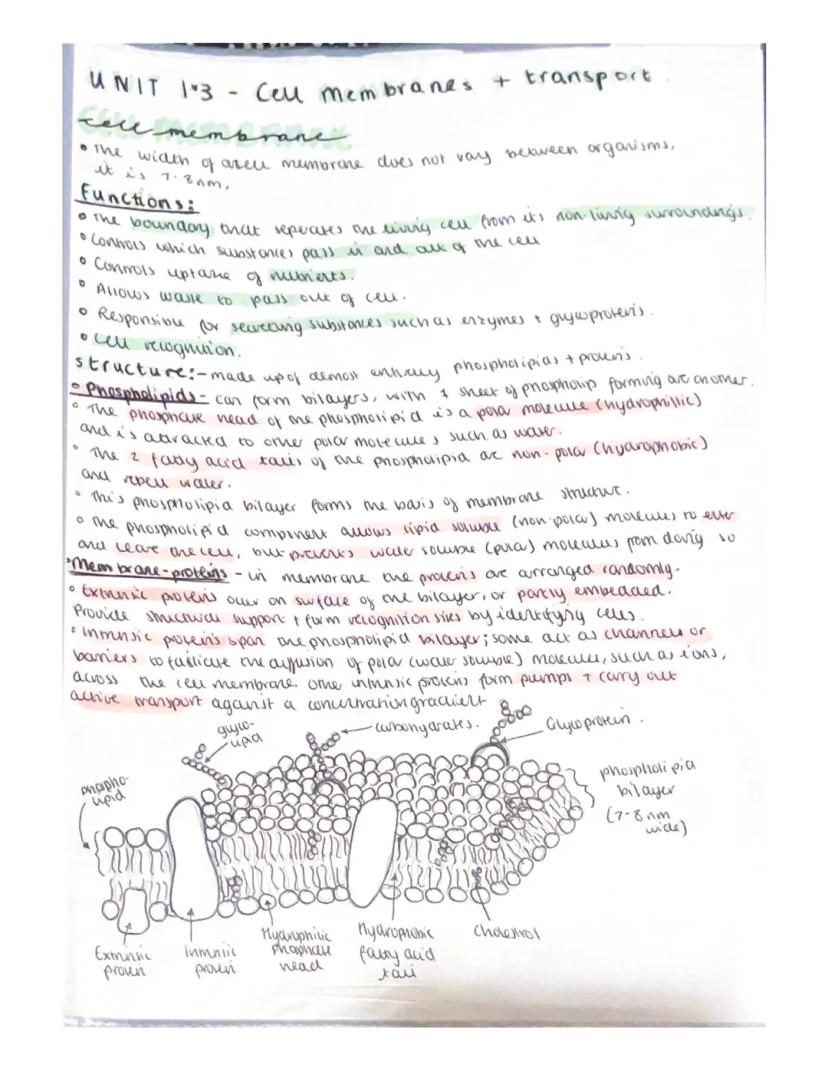 UNIT 1.3 - Cell membranes + transport.
cell membrane
• The width of a cell membrane does not vary between organisms,
it is 7-8nm.
Functions:
• The boundary that seperates the living cell from its non-living surroundings.
• Controls which substances pass in and out of the cell
• Controls uptake of nutrients.
• Allows waste to pass out of cell.
• Responsible for secreting substances such as enzymes + glycoproteins.
• Cell recognition.
structure:- made up of almost entirely phospholipids + proteins.
• Phospholipids - can form bilayers, with 1 sheet of phospholip forming over another.
• The phosphate head of one phospholipid is a polar molecule (hydrophillic)
and is attracted to other polar molecules such as water.
• The 2 fatty acid tails of the phospholipid are non-polar (hydrophobic)
and repell water.
• This phospholipid bilayer forms the basis of membrane structure.
• The phospholipid component allows lipid soluble (non-polar) molecules to enter
and leave the cell, but prevents water soluble (polar) molecules from doing so
• Membrane-proteins - in membrane the proteins are arranged randomly.
• Extrinsic proteins occur on surface of the bilayer, or partly embedded.
Provide structural support + form recognition sites by identifying cells.
• Intrinsic proteins span the phospholipid bilayer; some act as channels or
barriers to faciliate the diffusion of polar (water soluble) molecules, such as ions,
across the cell membrane. Other intrinsic proteins form pumps + carry out
active transport against a concentration gradient
glyco-
lipid
carbohydrates.
Glycoprotein.
phospho-
lipid
phospholipid
bilayer
(7-8nm
wide)
Extrinsic
protein
Intrinsic
protein
Hydrophilic
phosphate
head
Hydrophobic
fatty acid
tail
Cholestrol